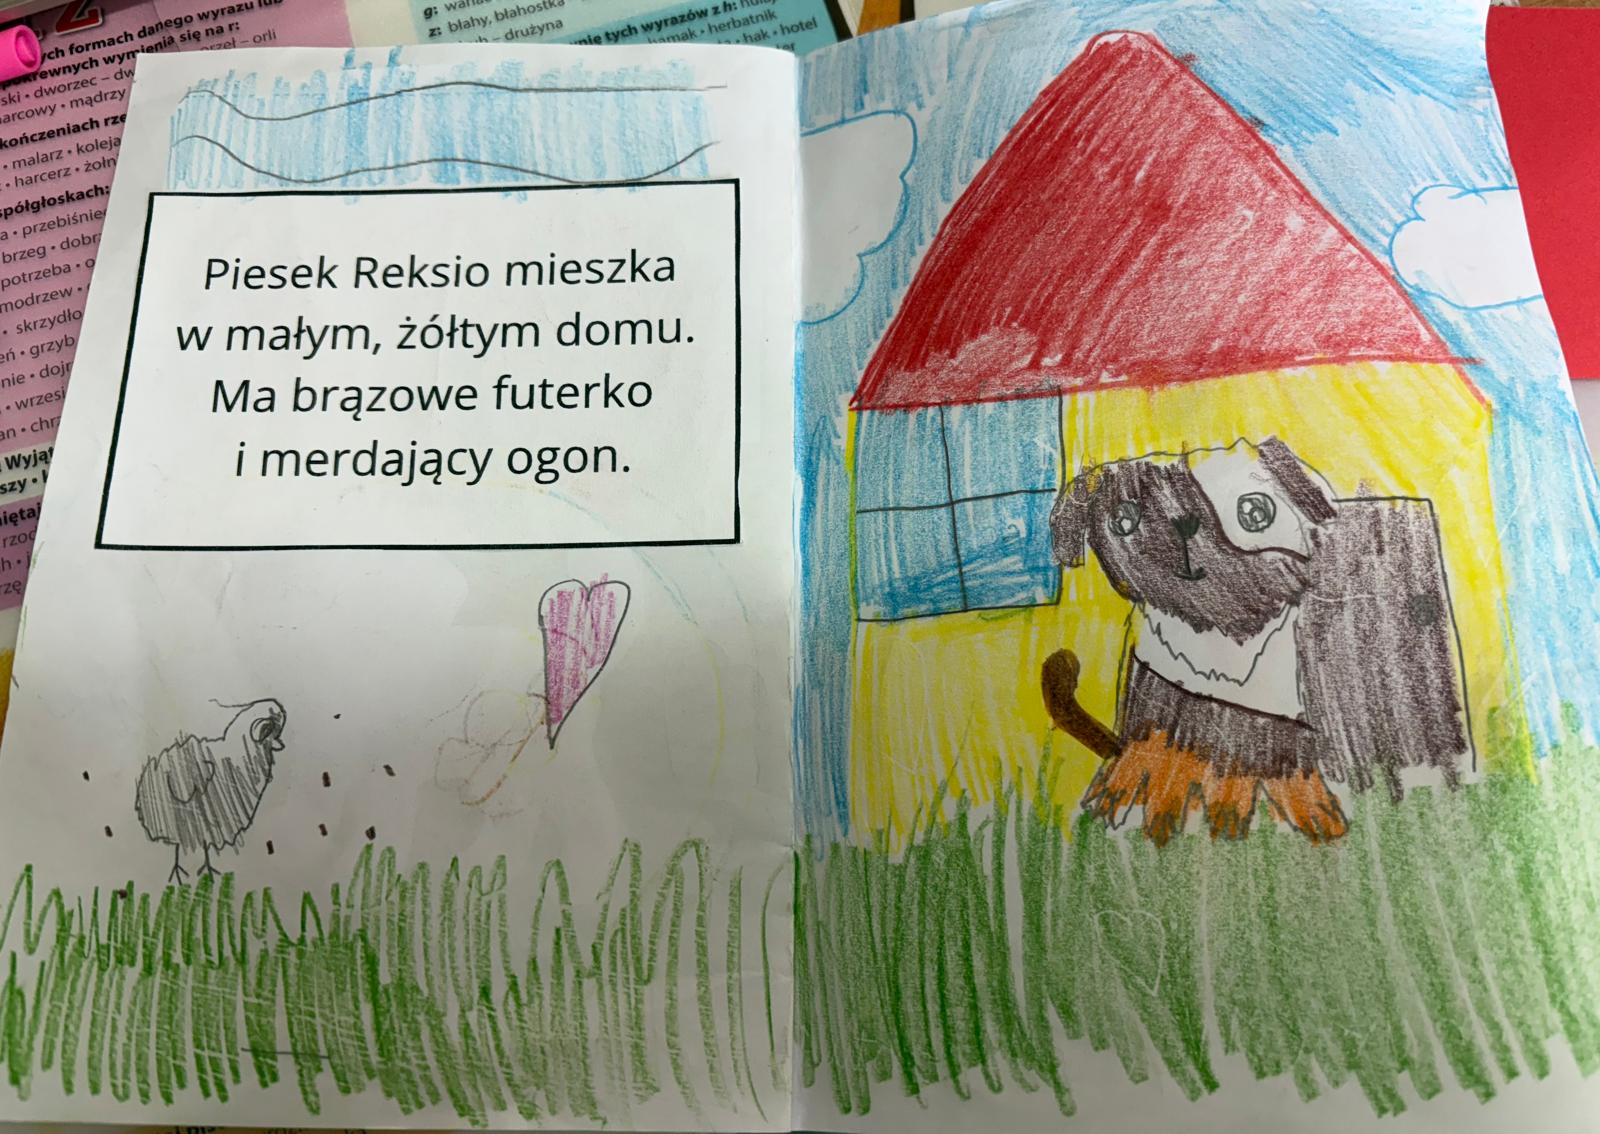 ych formach danego wyrazu lub
okrewnych wymienia się na r:
orzeł – orli
ski • dworzec – dw
arcowy • mądrzy
kończeniach rze
• malarz • koleja
• harcerz • żołn
spółgłoskach:
a • przebiśnie
brzeg • dobr
potrzeba • o
modrzew •
• skrzydło
eń • grzyb
nie • dojr
• wrześ
an • chrz
Wyjąt
szy •
iętaj
rzod
g:
z: błahy, błahostka
– drużyna
nie tych wyrazów z h:
hamak • herbatnik
• hak • hotel
Piesek Reksio mieszka
w małym, żółtym domu.
Ma brązowe futerko
i merdający ogon.